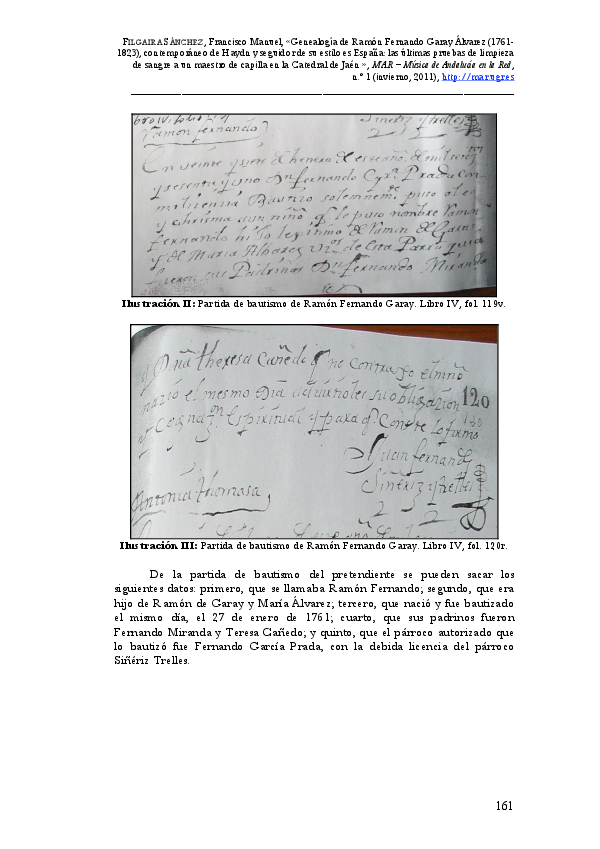 FILGAIRA SÁNCHEZ, Francisco Manuel, «Genealogía de Ramón Fernando Garay Álvarez (1761-
1823), contemporáneo de Haydn y seguidor de su estilo es España: las últimas pruebas de limpieza
de sangre a un maestro de capilla en la Catedral de Jaén », MAR – Música de Andalucía en la Red,
n.º 1 (invierno, 2011), http://mar.ugr.es
Ramon fernando
En veinte y siete de henero de este año de mil setez.
y sesenta y uno Dn fernando Prada con
mi licencia Bautizo solemnem.te puso oleo
y chrisma a un niño q.e le puso nombre Ramon
fernando hijo legitimo de Ramon de Garai
y de Maria Albarez de esta Parroquia
fueron sus Padrinos Dn fernando Miranda
Ilustración II: Partida de bautismo de Ramón Fernando Garay. Libro IV, fol. 119v.
Dña theresa Cañedo q no contraxo el niño
nazió el mesmo Dia su obligazion 120
Espiritual y para q.e Conste lo firmo
Juan fernand
Antonia thomasa
Siñeriz y trelles
Ilustración III: Partida de bautismo de Ramón Fernando Garay. Libro IV, fol. 120r.
De la partida de bautismo del pretendiente se pueden sacar los
siguientes datos: primero, que se llamaba Ramón Fernando; segundo, que era
hijo de Ramón de Garay y María Álvarez; tercero, que nació y fue bautizado
el mismo día, el 27 de enero de 1761; cuarto, que sus padrinos fueron
Fernando Miranda y Teresa Cañedo; y quinto, que el párroco autorizado que
lo bautizó fue Fernando García Prada, con la debida licencia del párroco
Siñériz Trelles.
161